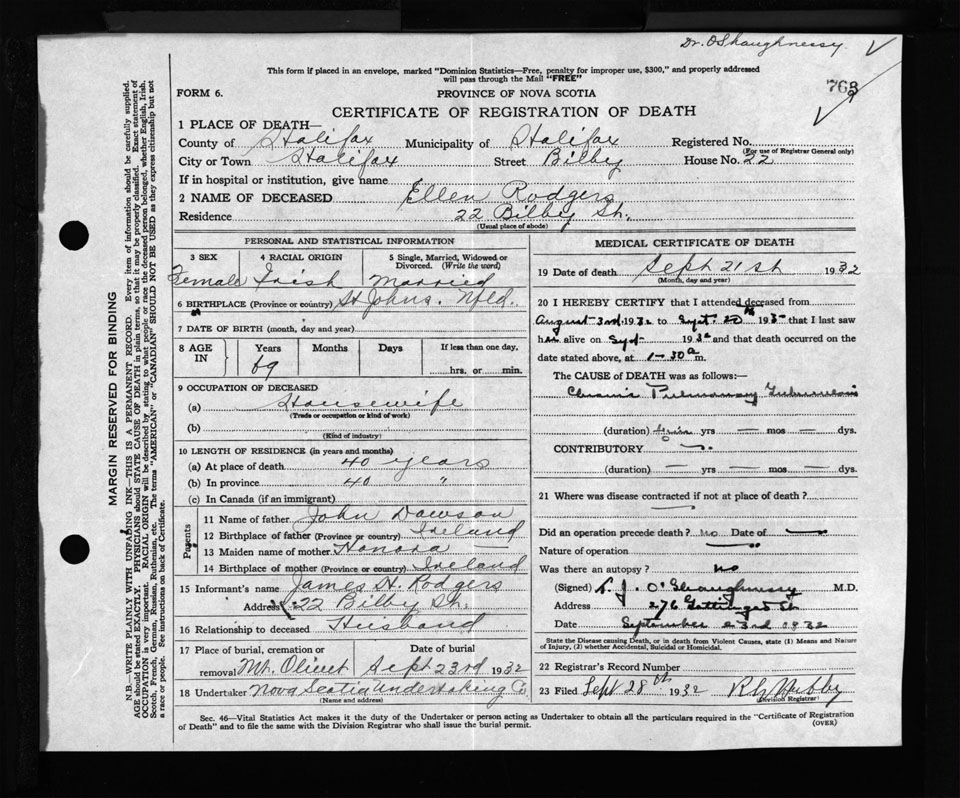 Dr. O'Shaughnessy
This form if placed in an envelope, marked "Dominion Statistics—Free, penalty for improper use, $300," and properly addressed
will pass through the Mail "FREE"
768
FORM 6.
PROVINCE OF NOVA SCOTIA
CERTIFICATE OF REGISTRATION OF DEATH
1 PLACE OF DEATH—
County of Halifax Municipality of Halifax Registered No.
(For use of Registrar General only)
City or Town Halifax Street Bilby House No. 22
If in hospital or institution, give name
2 NAME OF DECEASED Ellen Rodgers
Residence 22 Bilby St.
(Usual place of abode)
PERSONAL AND STATISTICAL INFORMATION
3 SEX 4 RACIAL ORIGIN 5 Single, Married, Widowed or Divorced. (Write the word)
Female Irish Married
6 BIRTHPLACE (Province or country) St Johns. Nfld.
7 DATE OF BIRTH (month, day and year)
8 AGE IN Years Months Days If less than one day.
69 hrs. or min.
9 OCCUPATION OF DECEASED
(a) Housewife
(Trade or occupation or kind of work)
(b)
(Kind of industry)
10 LENGTH OF RESIDENCE (in years and months)
(a) At place of death 40 years
(b) In province 40 "
(c) In Canada (if an immigrant)
Parents
11 Name of father John Dawson
12 Birthplace of father (Province or country) Ireland
13 Maiden name of mother Honora —
14 Birthplace of mother (Province or country) Ireland
15 Informant's name James H. Rodgers
Address 22 Bilby St.
16 Relationship to deceased Husband
17 Place of burial, cremation or removal Date of burial
Mt. Olivet Sept 23rd 1932
18 Undertaker Nova Scotia Undertaking Co.
(Name and address)
MEDICAL CERTIFICATE OF DEATH
19 Date of death Sept 21st 1932
(Month, day and year)
20 I HEREBY CERTIFY that I attended deceased from
August 3rd 1932 to Sept. 20th 193 that I last saw
her alive on Sept 1932 and that death occurred on the
date stated above, at 1-30 a m.
The CAUSE OF DEATH was as follows:—
Chronic Pulmonary Tuberculosis
(duration) yrs — mos — dys.
CONTRIBUTORY
(duration) — yrs — mos — dys.
21 Where was disease contracted if not at place of death?
Did an operation precede death? no Date of
Nature of operation
Was there an autopsy? no
(Signed) J. O'Shaughnessy M.D.
Address 276 Gottingen St
Date September 23rd 1932
State the Disease causing Death, or in death from Violent Causes, state (1) Means and Nature
of Injury, (2) whether Accidental, Suicidal or Homicidal.
22 Registrar's Record Number
23 Filed Sept 28th 1932
(Division Registrar)
Sec. 46—Vital Statistics Act makes it the duty of the Undertaker or person acting as Undertaker to obtain all the particulars required in the "Certificate of Registration
of Death" and to file the same with the Division Registrar who shall issue the burial permit.
(OVER)
MARGIN RESERVED FOR BINDING
N.B.—WRITE PLAINLY WITH UNFADING INK—THIS IS A PERMANENT RECORD. Every item of information should be carefully supplied.
AGE should be stated EXACTLY. PHYSICIANS should STATE CAUSE OF DEATH in plain terms, so that it may be properly classified. Exact statement of
OCCUPATION is very important. RACIAL ORIGIN will be described by stating to what people or race the deceased person belonged, whether English, Irish,
Scotch, French, German, Russian, Ruthenian, etc. The terms "AMERICAN" or "CANADIAN" SHOULD NOT BE USED as they express citizenship but not
a race or people. See instructions on back of Certificate.